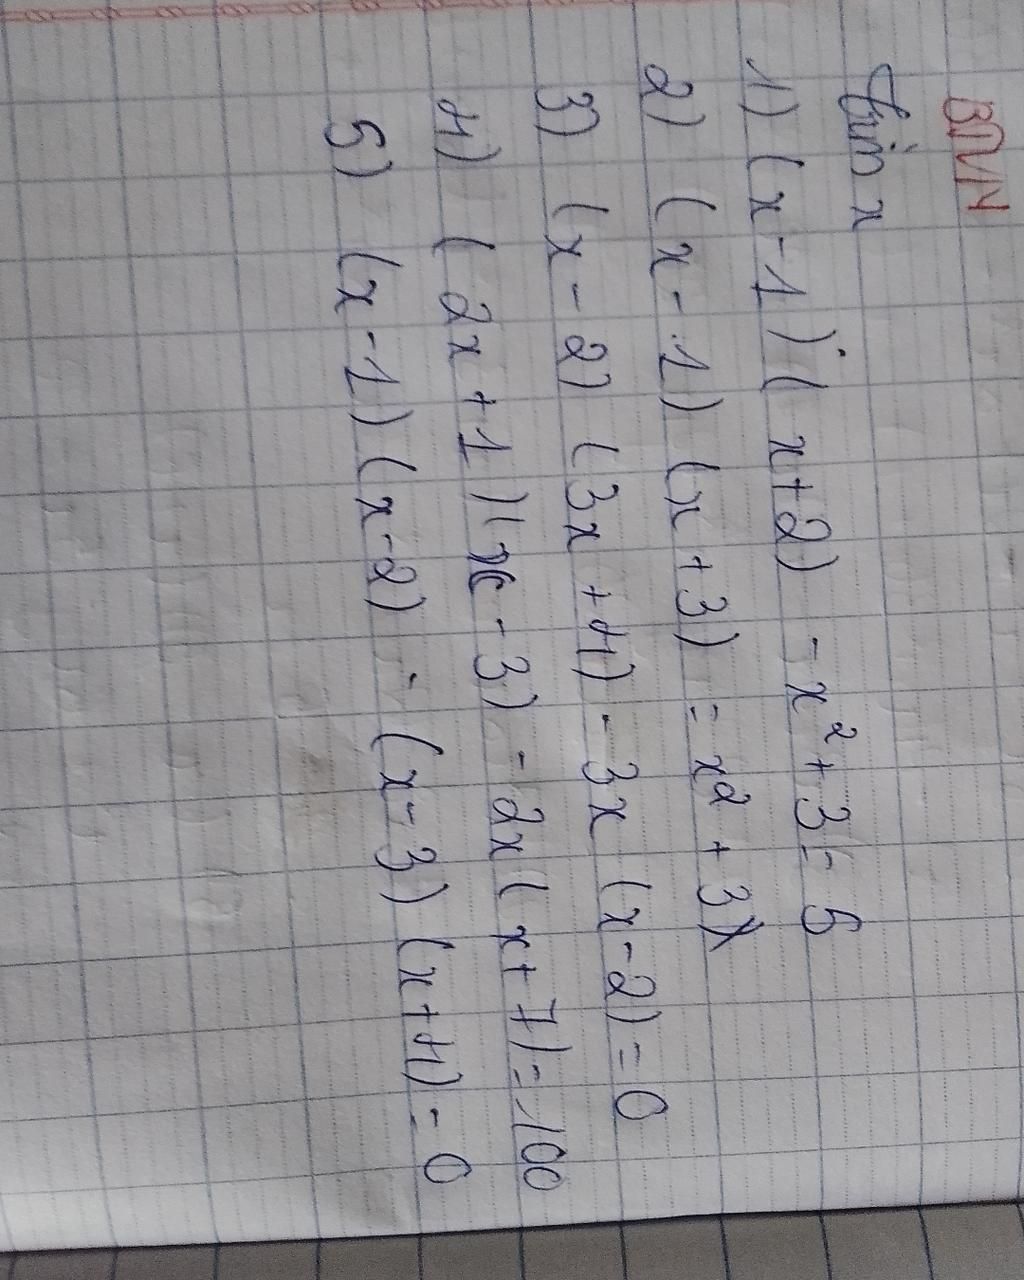 BTVN
Tìm x
1) (x-1)(x+2) - x² + 3 = 5
2) (x-1)(x+3) = x² + 3x
3) (x-2)(3x+4) - 3x(x-2) = 0
4) (2x+1)(x-3) - 2x(x+7) = 100
5) (x-1)(x-2) - (x-3)(x+4) = 0